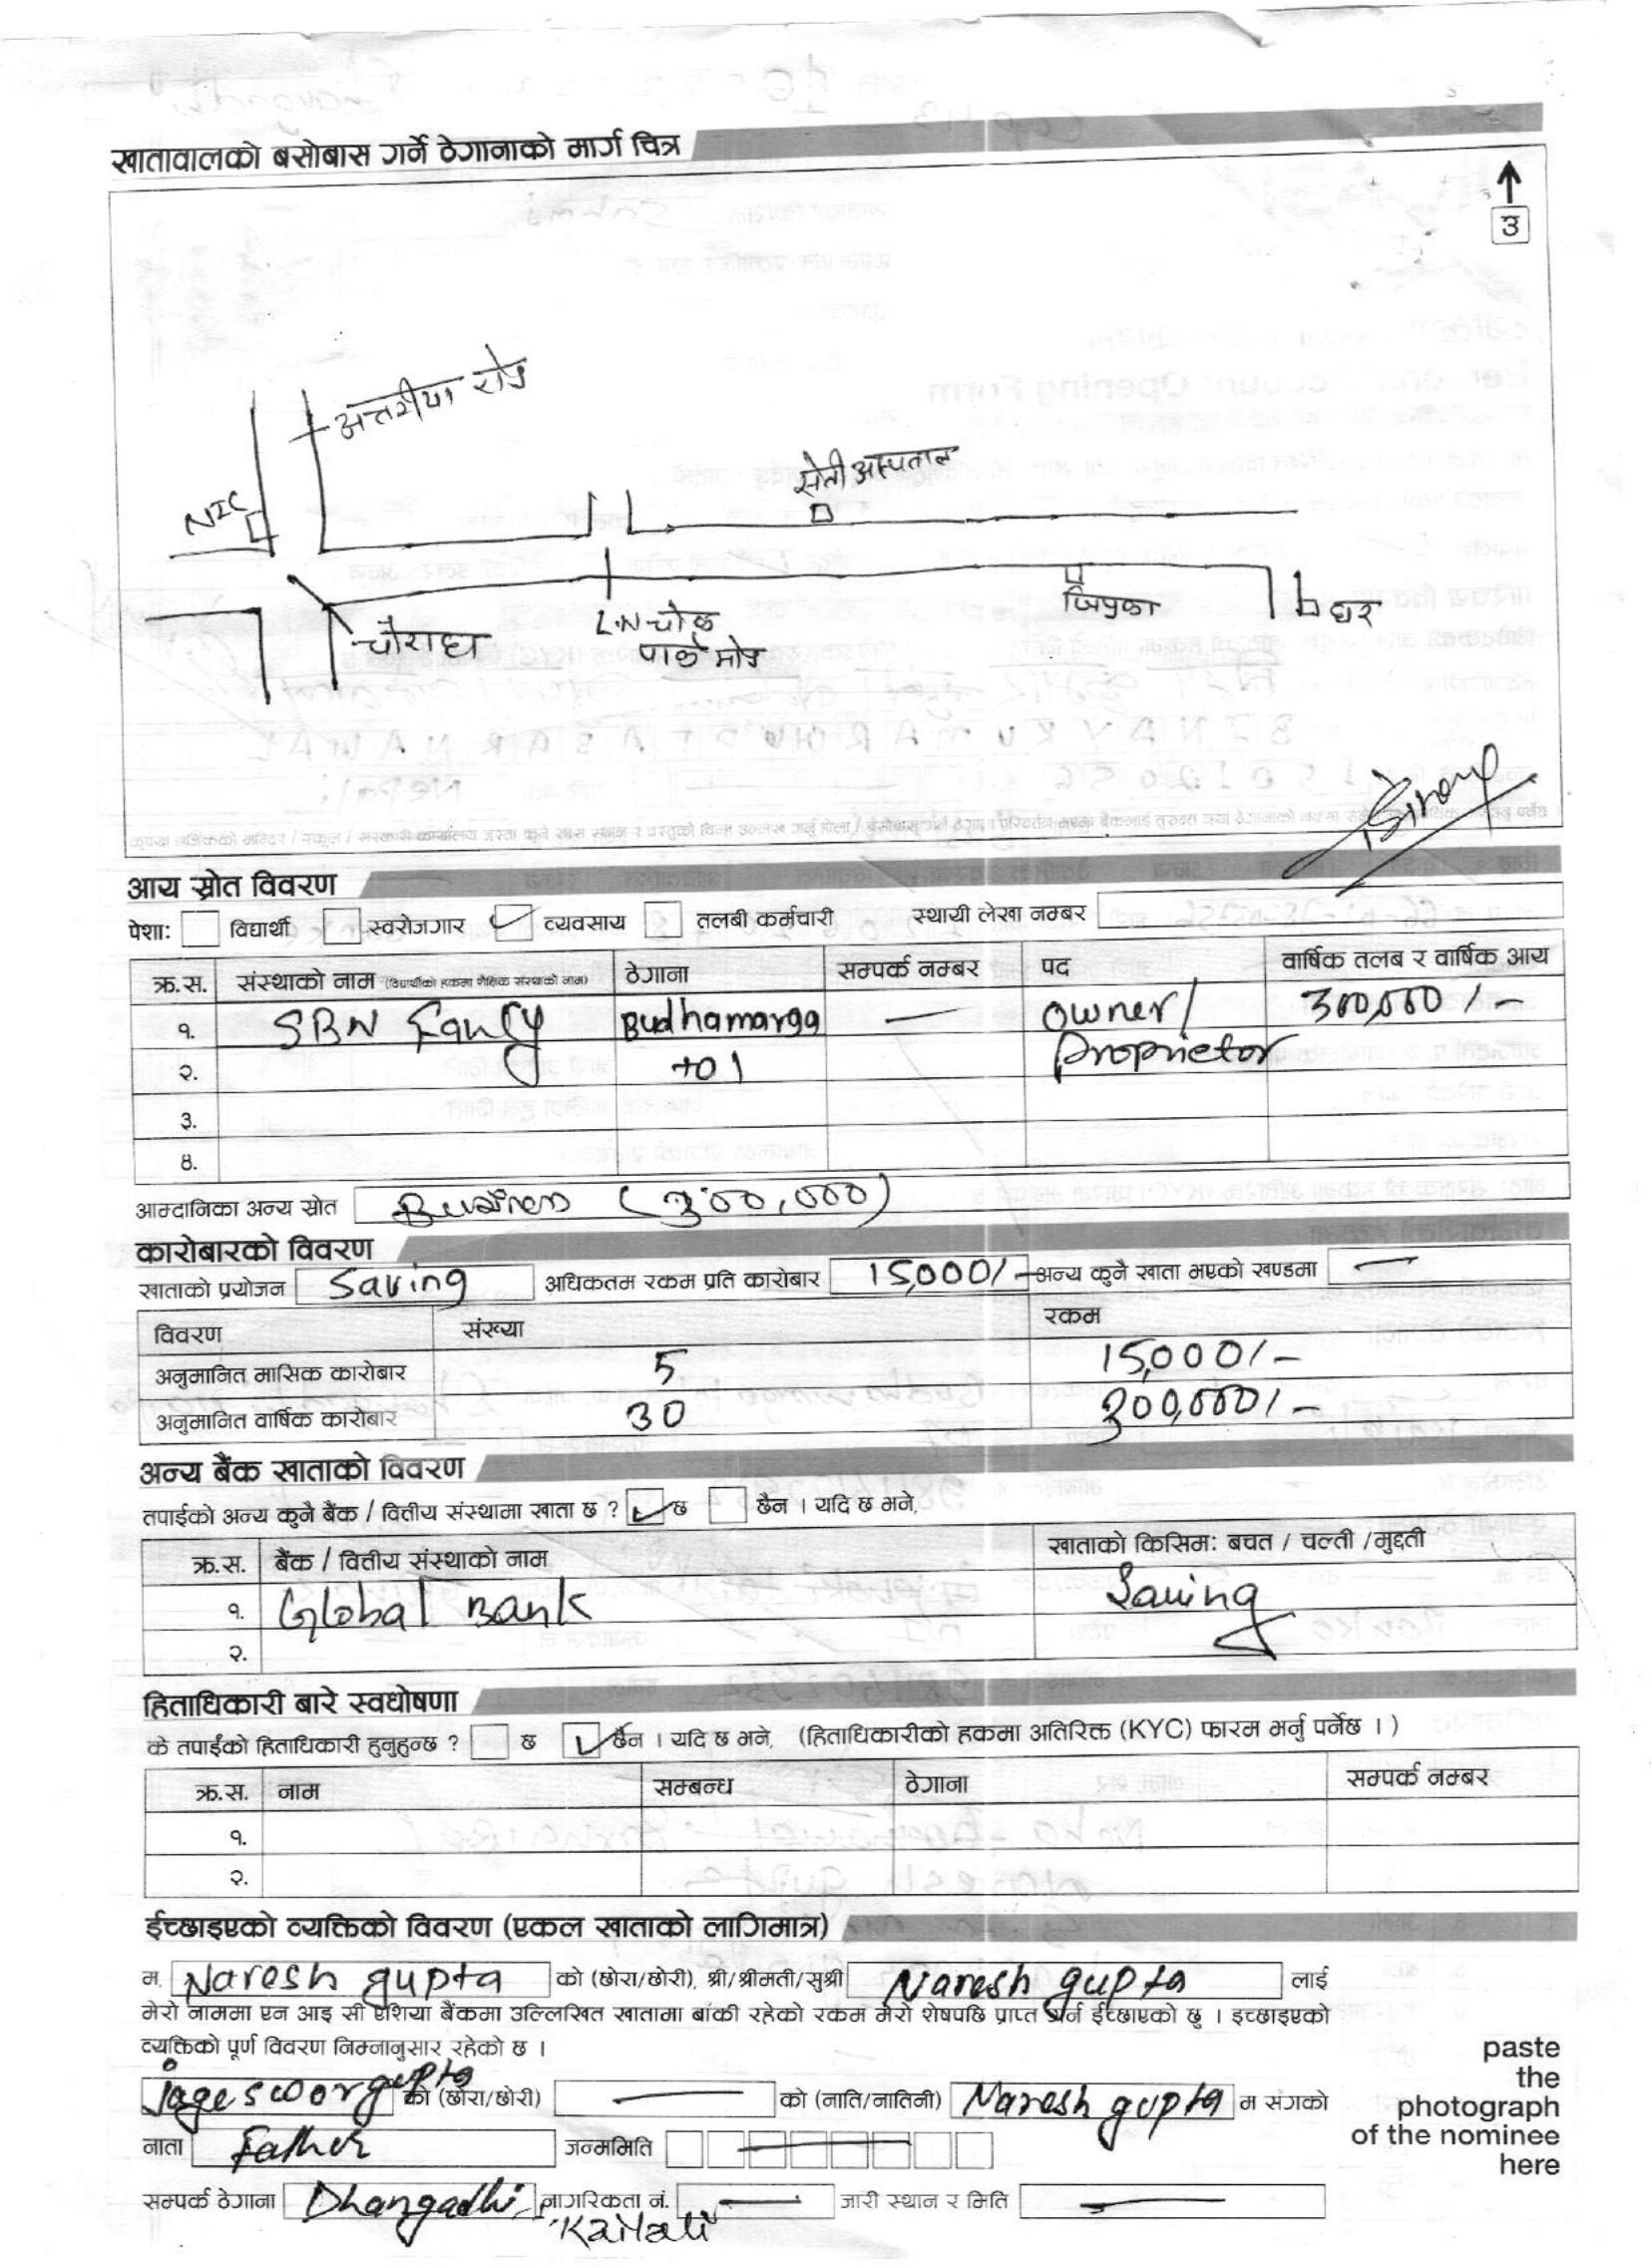 खातावालको बसोबास गर्ने ठेगानाको मार्ग चित्र
उ
अत्तरीया रोड
सेती अस्पताल
NIC
चौराहा
L.N चोक
पार्क मोड
घर
आय स्रोत विवरण
पेशा: विद्यार्थी स्वरोजगार व्यवसाय तलबी कर्मचारी स्थायी लेखा नम्बर
क्र.स. संस्थाको नाम (विद्यार्थीको हकमा शैक्षिक संस्थाको नाम) ठेगाना सम्पर्क नम्बर पद वार्षिक तलब र वार्षिक आय
१. SBN Fancy Budhamarga — owner/ 300,000/-
२. Proprietor
३.
४.
आम्दानिका अन्य स्रोत Business (300,000)
कारोबारको विवरण
खाताको प्रयोजन Saving अधिकतम रकम प्रति कारोबार 15,000/- अन्य कुनै खाता भएको खण्डमा —
विवरण संख्या रकम
अनुमानित मासिक कारोबार 5 15,000/-
अनुमानित वार्षिक कारोबार 30 300,000/-
अन्य बैंक खाताको विवरण
तपाईको अन्य कुनै बैंक / वित्तीय संस्थामा खाता छ ? छ छैन । यदि छ भने,
क्र.स. बैंक / वित्तीय संस्थाको नाम खाताको किसिम: बचत / चल्ती /मुद्दती
१. Global Bank Saving
२.
हिताधिकारी बारे स्वघोषणा
के तपाईंको हिताधिकारी हुनुहुन्छ ? छ छैन । यदि छ भने, (हिताधिकारीको हकमा अतिरिक्त (KYC) फारम भर्नु पर्नेछ । )
क्र.स. नाम सम्बन्ध ठेगाना सम्पर्क नम्बर
१.
२.
ईच्छाइएको व्यक्तिको विवरण (एकल खाताको लागिमात्र)
म, Naresh gupta को (छोरा/छोरी), श्री/श्रीमती/सुश्री Naresh gupta लाई
मेरो नाममा एन आइ सी एशिया बैंकमा उल्लिखित खातामा बांकी रहेको रकम मेरो शेषपछि प्राप्त गर्न ईच्छाएको छु । इच्छाइएको
व्यक्तिको पूर्ण विवरण निम्नानुसार रहेको छ ।
jageswor gupta को (छोरा/छोरी) — को (नाति/नातिनी) Naresh gupta म संगको
नाता Father जन्ममिति —
सम्पर्क ठेगाना Dhangadhi, नागरिकता नं. — जारी स्थान र मिति —
Kailali
paste
the
photograph
of the nominee
here